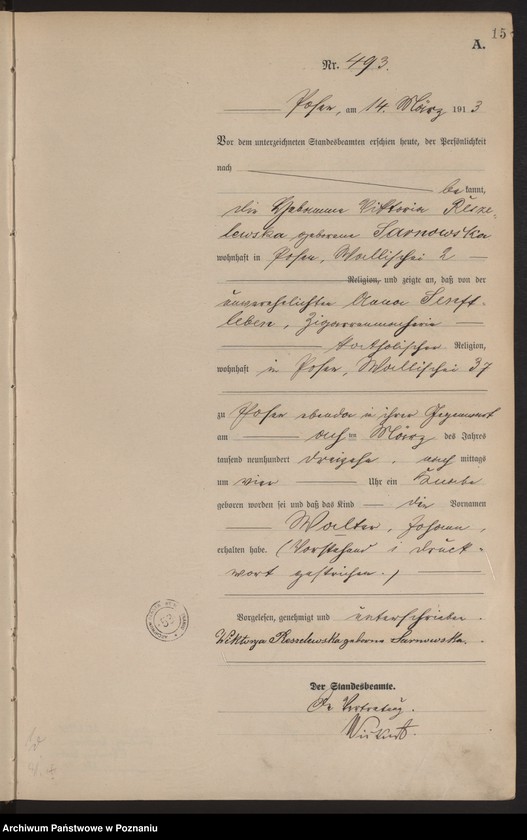 15
A.
Nr. 493.
Posen, am 14. März 1913
Vor dem unterzeichneten Standesbeamten erschien heute, der Persönlichkeit
nach
be kannt,
die Hebamme Viktoria Resze-
lewska geborene Sarnowska
wohnhaft in Posen, Wallischei 2
Religion, und zeigte an, daß von der
unverehelichten Anna Senft-
leben, Zigarrenmacherin
katholischer Religion,
wohnhaft in Posen, Wallischei 37
zu Posen ebenda in ihrer Gegenwart
am acht ten März des Jahres
tausend neunhundert dreizehn, nach mittags
um vier Uhr ein Knabe
geboren worden sei und daß das Kind die Vornamen
Walter, Johann,
erhalten habe. (Vorstehend 1 Druck-
wort gestrichen.)
Vorgelesen, genehmigt und unterschrieben.
Wiktorya Reszelewska geborene Sarnowska.
Der Standesbeamte.
In Vertretung.
53
Archiwum Państwowe w Poznaniu